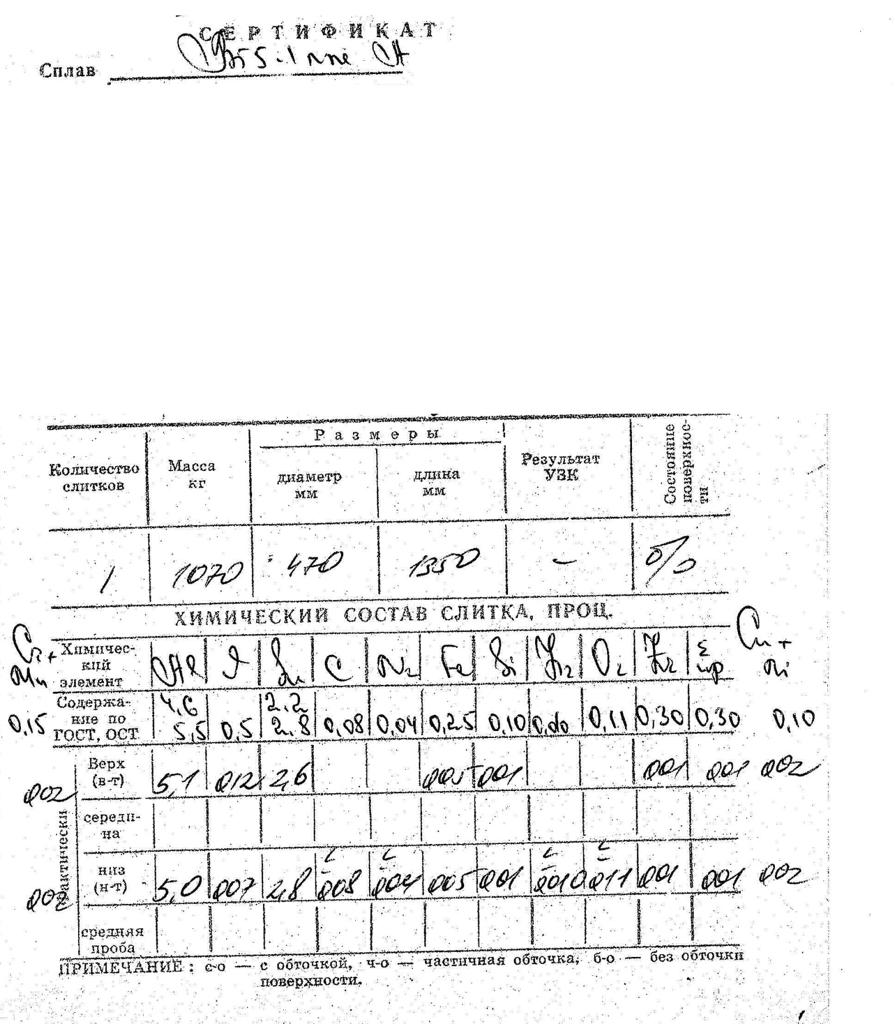 СЕРТИФИКАТ
Сплав
Размеры
Количество слитков Масса кг диаметр мм длина мм Результат УЗК Состояние поверхнос-ти
1 1070 470 1350 — б/о
ХИМИЧЕСКИЙ СОСТАВ СЛИТКА, ПРОЦ.
Химичес-кий элемент Al C N2 Fe Si H2 O2 Zr Σ пр
Содержа-ние по ГОСТ, ОСТ 4,6 5,5 0,5 2,2 2,8 0,08 0,04 0,25 0,10 0,11 0,30 0,30 0,10
0,15
фактически
002 Верх (в-т) 5,1 012 2,6 005 001 001 001 002
середи-на
002 низ (н-т) 5,0 007 2,8 008 004 005 001 0010 011 001 001 002
средняя проба
ПРИМЕЧАНИЕ: с-о — с обточкой, ч-о — частичная обточка, б-о — без обточки
поверхности.